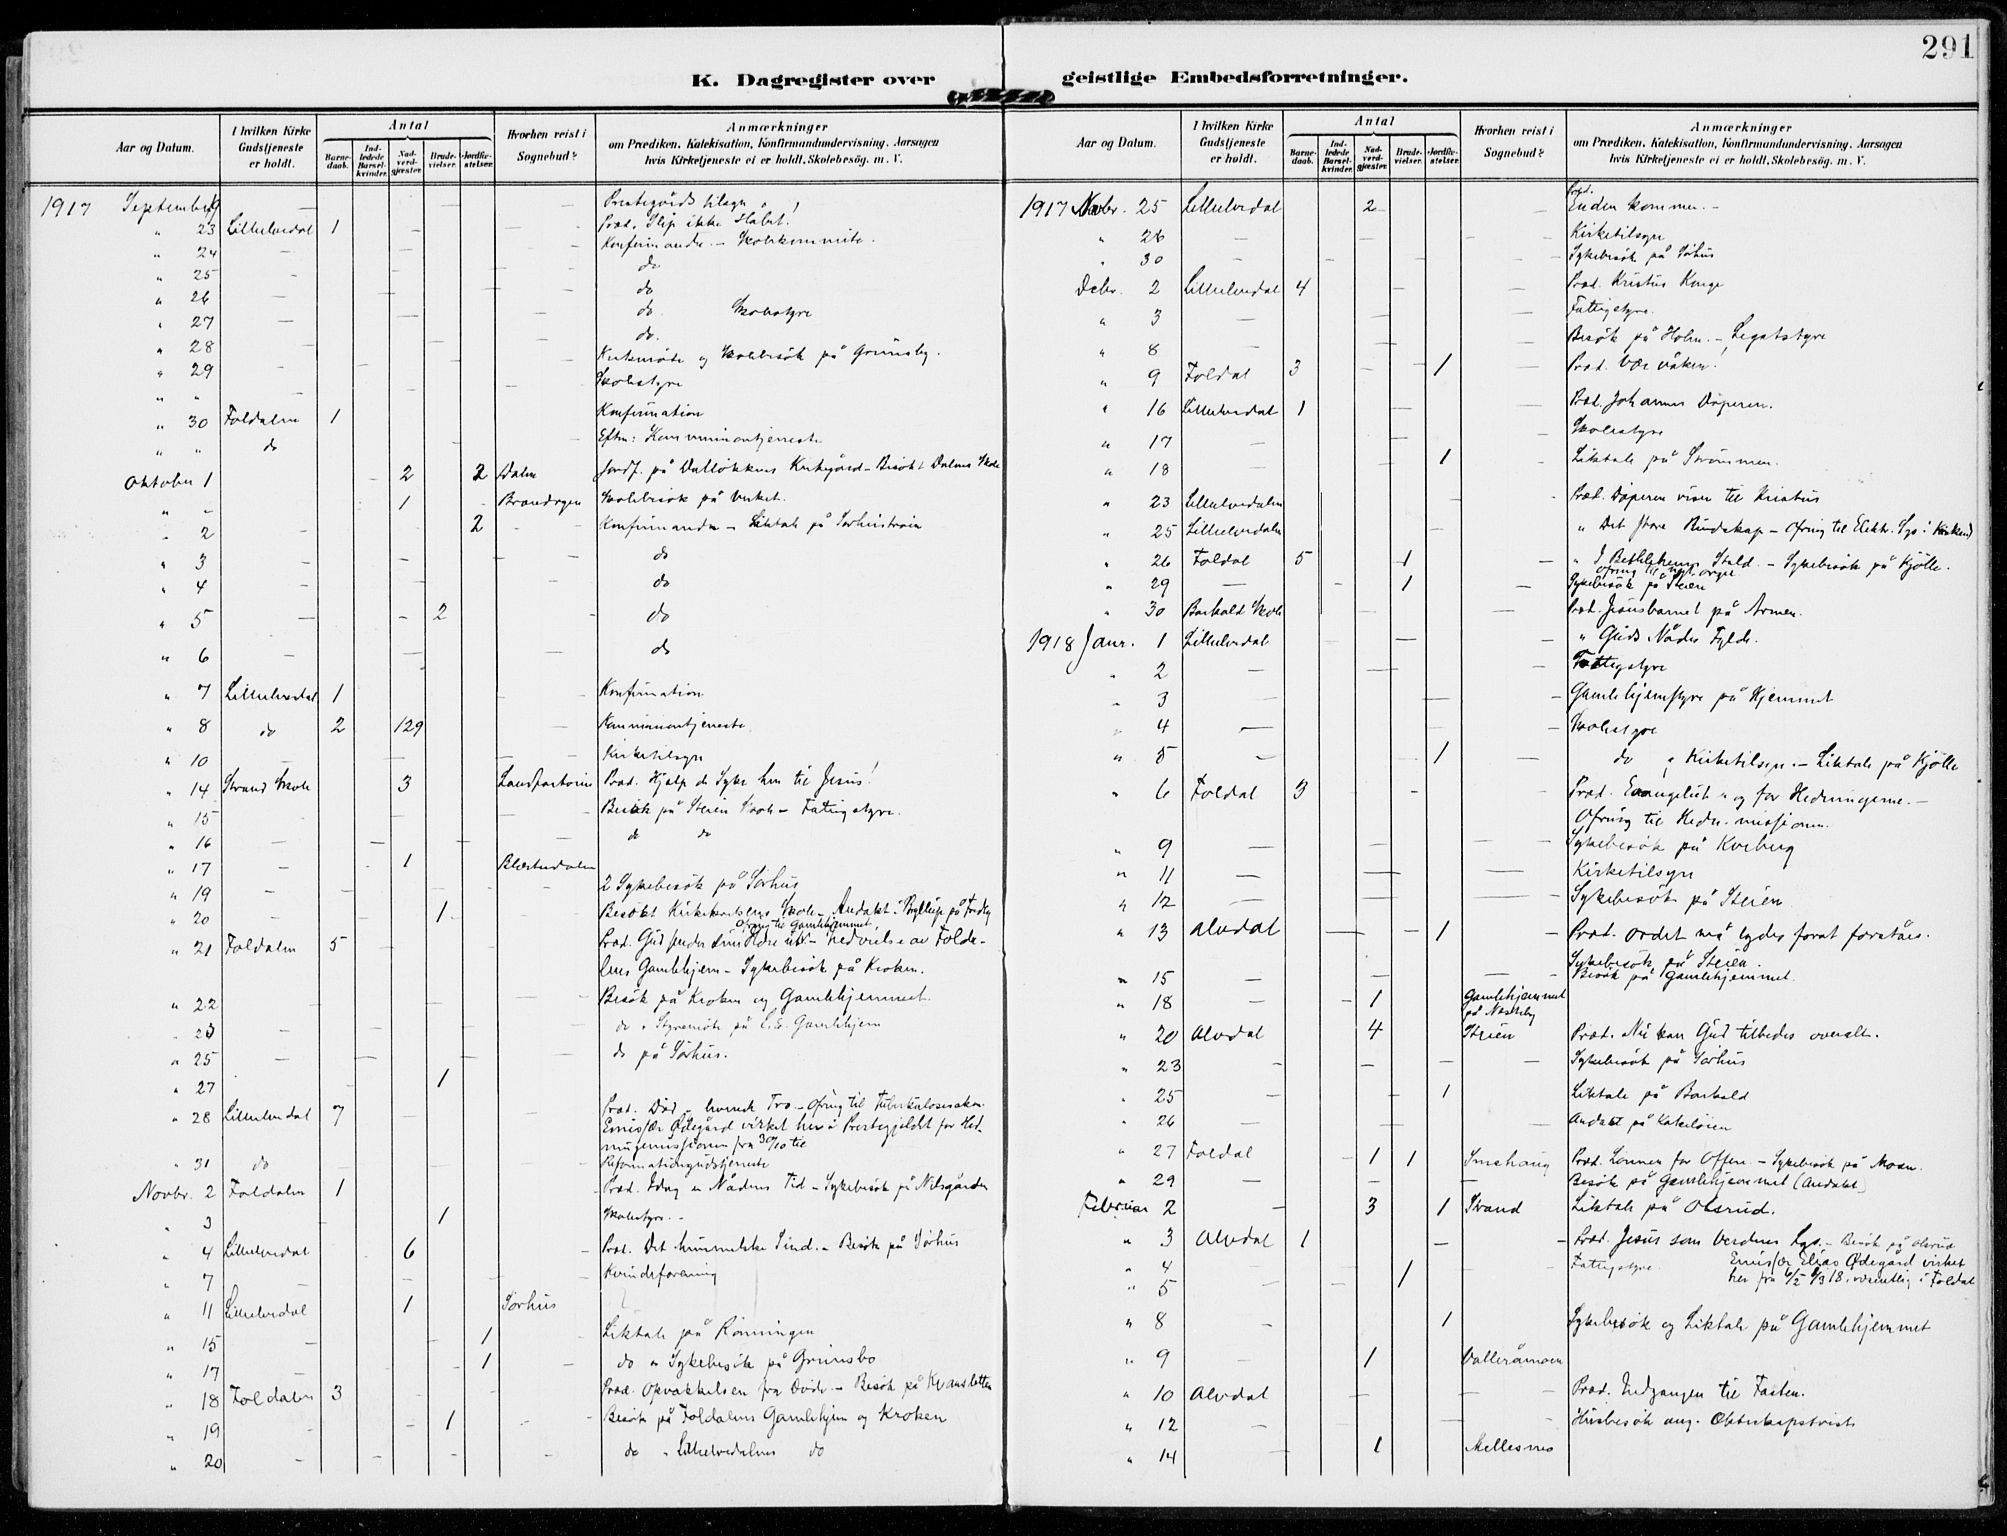 291
K. Dagregister over geistlige Embedsforretninger.
Aar og Datum. I hvilken Kirke Gudstjeneste er holdt. Antal Barnedaab. Indledede Barselkvinder. Nadverdgjæster. Brudevielser. Jordfæstelser. Hvorhen reist i Sognebud? Anmærkninger om Prædiken, Katekisation, Konfirmandundervisning, Aarsagen hvis Kirketjeneste ei er holdt, Skolebesøg. m. V.
1917 September 19 — Prestegårds tilsyn
" 23 Lillelvedal 1 Præd. Slip ikke Håbet!
" 24 — Konfirmander — Skolekommite.
" 25 — do
" 26 — do
" 27 — do. Skolestyre
" 28 — do.
" 29 — Kirkemøte og Skolebesök på Grimsby.
" " Skolestyre
" 30 Foldalen 1 Konfirmation
" " do Eftm: Kommuniontjeneste
Oktober 1 2 2 Dalen Jordf. på Dalløkkens Kirkegård — Besökt Dalens Skole
" - 1 Brandrgen Skolebesök på Verket.
" 2 2 Konfirmander — Liktale på Sørhustrøen
" 3 — do
" 4 — do
" 5 — 2 do
" 6 — do
" 7 Lillelvedal 1 Konfirmation
" 8 do 2 129 Kommuniontjeneste
" 10 — Kirketilsyn
" 14 Strand Skole 3 Præd. Hjælp de Syke hen til Jesus!
" 15 Besök på Steien Skole — Fattigstyre.
" 16 — do do
" 17 — 1
" 19 — 2 Sykebesök på Sørhus
" 20 — 1
" 21 Foldalen 5 Præd. Gud sender sine
lens Gamlehjem — Sykebesök på Kroken.
" 22 Besök på Kroken og Gamlehjemmet.
" 23 — do " Styremöte på L.E. Gamlehjem
" 25 — do på Sørhus.
" 27 1
" 28 Lillelvedal 7 Præd. Död — levende Tro. — Ofring til Tuberkulosesaken.
Emissær Ødegård virket her i Prestegjeldet for Hed-
ningemissionen fra 30/10 til
" 31 do Reformationsgudstjeneste
Novbr. 2 Foldalen 1 Præd. Idag er Nådens Tid — Sykebesök på Nilsgården
" 3 1 Skolestyre. -
" 4 Lillelvedal 6 Præd. Det himmelske Sind. — Besök på Sørhus
" 7 — Kvindeforening
" 11 Lillelvedal 1 Sørhus
" 15 — 1 Liktale på Rønningen
" 17 — 1 do " Sykebesök på Grimsbo
" 18 Foldalen 3 Præd. Opvækkelsen fra Døde. — Besök på Kvansletten
" 19 1 Besök på Foldalens Gamlehjem og Kroken
" 20 - do " Lillelvedalens do
Aar og Datum. I hvilken Kirke Gudstjeneste er holdt. Antal Barnedaab. Indledede Barselkvinder. Nadverdgjæster. Brudevielser. Jordfæstelser. Hvorhen reist i Sognebud? Anmærkninger om Prædiken, Katekisation, Konfirmandundervisning, Aarsagen hvis Kirketjeneste ei er holdt, Skolebesög. m. V.
1917 Novbr. 25 Lillelvedal 2 Præd. Enden kommer. -
" 26 — Kirketilsyn
" 30 — Sykebesök på Sørhus
Decbr. 2 Lillelvedal 4 Præd. Kristus Konge
" 3 — Fattigstyre.
" 8 — Besök på Holen. — Legatstyre
" 9 Foldal 3 1 Præd. Vær våken!
" 16 Lillelvedal 1 Præd. Johannes Døperen.
" 17 — Skolestyre
" 18 — 1 Liktale på Strømmen.
" 23 Lillelvedalen Præd. Døperen viser til Kristus
" 25 Lillelvedalen " Det store Budskap — Ofring til Elektr. Lys i Kirken
" 26 Foldal 5 1 " I Betlehems Stald. — Sykebesök på Kjölle.
" 29 — 1 Sykebesök på Steien
" 30 Barkald Skole Præd. Jesusbarnet på Armen.
1918 Janr. 1 Lillelvedal " Guds Nådes Fylde.
" 2 — Fattigstyre
" 3 — Gamlehjemstyre på Hjemmet
" 4 — Skolestyre
" 5 — 1 do " Kirketilsyn. — Liktale på Kjölle
" 6 Foldal 3 Præd. Evangeliet " og for Hedningerne. —
Ofring til Hedn. missionen.
" 9 — Sykebesök på Kveberg
" 11 — Kirketilsyn
" 12 — Sykebesök på Steien
" 13 Alvdal 1 Præd. Ordet må lydes forat forståes.
Sykebesök på Steien.
" 15 — Besök på Gamlehjemmet.
" 18 — 1 Gamlehjemmet
" 20 Alvdal 4 Steien Præd. Nu kan Gud tilbedes overalt.
" 23 - Sykebesök på Sørhus
" 25 - 1 Liktale på Barkald
" 26 —
" 27 Foldal 1 1 Præd. Lønnen for Offere. — Sykebesök på Moan.
" 29 — Besök på Gamlehjemmet (Andakt)
Februar 2 3 1 Strand Liktale på Olsrud.
" 3 Alvdal 1 Præd. Jesus som Verdens Lys. — Besök på Olsrud
" 4 — Fattigstyre. Emissær Elias Ødegård virket
" 5 1 her fra 6/2 - 6/3 18, væsentlig i Foldal
" 8 — 1 Sykebesök og Liktale på Gamlehjemmet
" 9 — 1 Volleråmoen
" 10 Alvdal Præd. Indgangen til Fasten.
" 12 — Husbesök ang. Ekteskapstvist
" 14 — 1 Mellesmo